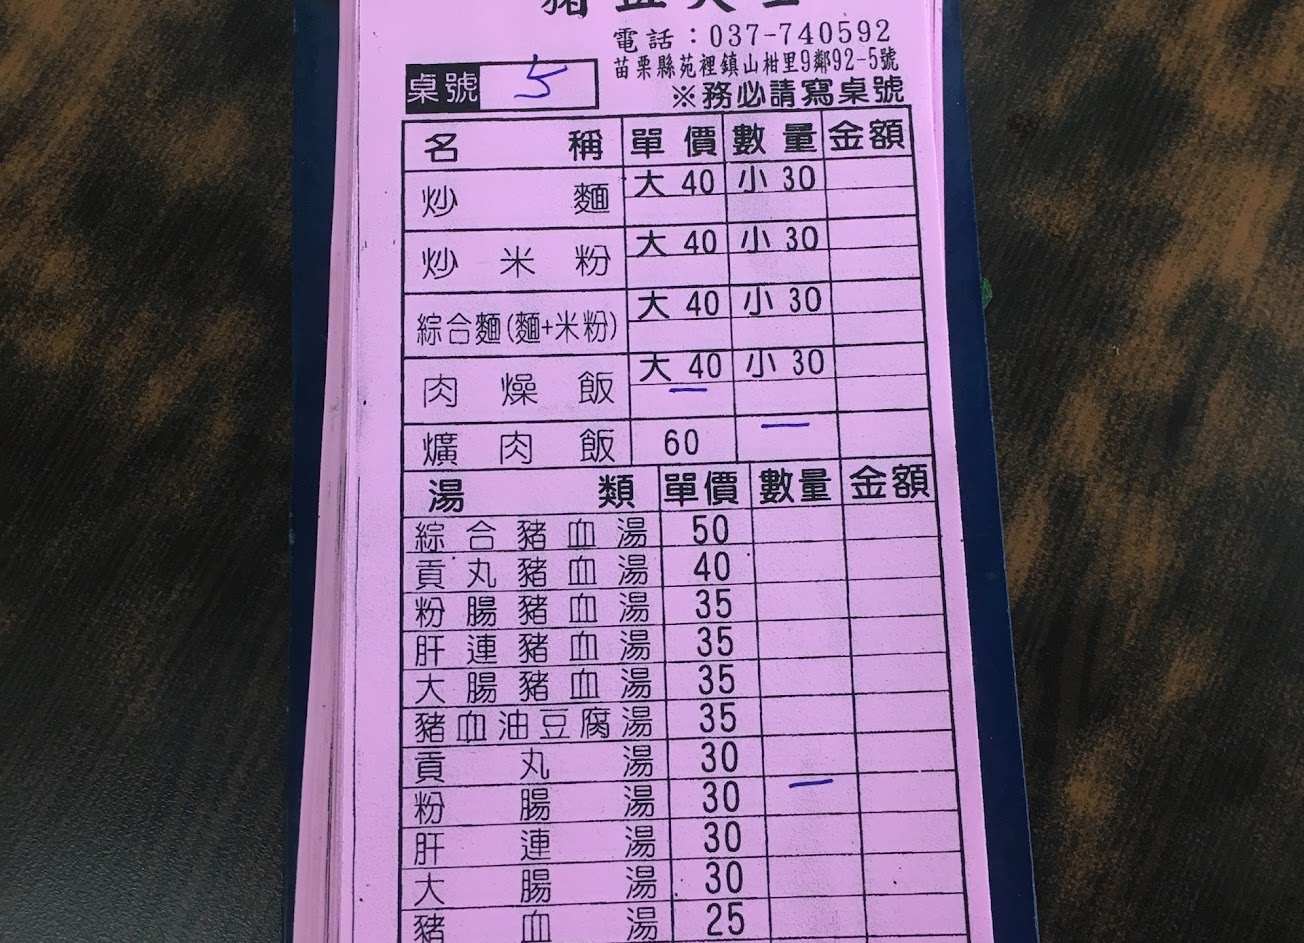 電話：037-740592
苗栗縣苑裡鎮山柑里9鄰92-5號
桌號 5
※務必請寫桌號
名稱 單價 數量 金額
炒麵 大 40 小 30
炒米粉 大 40 小 30
綜合麵(麵+米粉) 大 40 小 30
肉燥飯 大 40 小 30
一
爌肉飯 60 一
湯類 單價 數量 金額
綜合豬血湯 50
貢丸豬血湯 40
粉腸豬血湯 35
肝連豬血湯 35
大腸豬血湯 35
豬血油豆腐湯 35
貢丸湯 30
粉腸湯 30 一
肝連湯 30
大腸湯 30
豬血湯 25